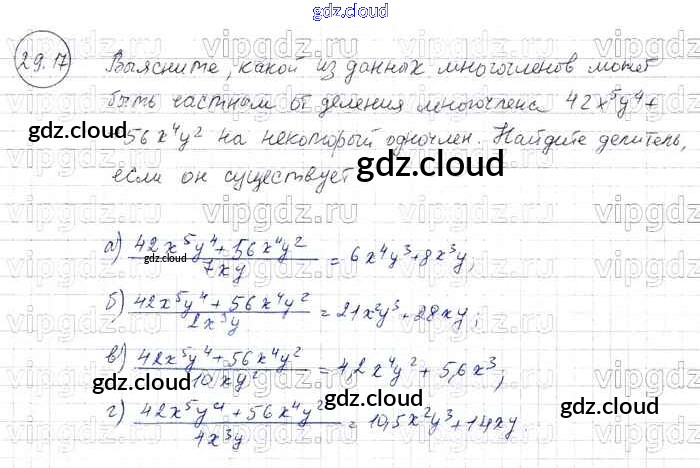 gdz.cloud
29.17
Выясните, какой из данных многочленов может
быть частным от деления многочлена 42x⁵y⁴+
56x⁴y² на некоторый одночлен. Найдите делитель,
если он существует
gdz.cloud
gdz.cloud
gdz.cloud
а) (42x⁵y⁴+56x⁴y²)/(7xy) = 6x⁴y³+8x³y;
gdz.cloud
б) (42x⁵y⁴+56x⁴y²)/(2x³y) = 21x²y³+28xy;
в) (42x⁵y⁴+56x⁴y²)/(10xy²) = 4,2x⁴y²+5,6x³;
gdz.cloud
г) (42x⁵y⁴+56x⁴y²)/(4x³y) = 10,5x²y³+14xy.
gdz.cloud
gdz.cloud
vipgdz.ru